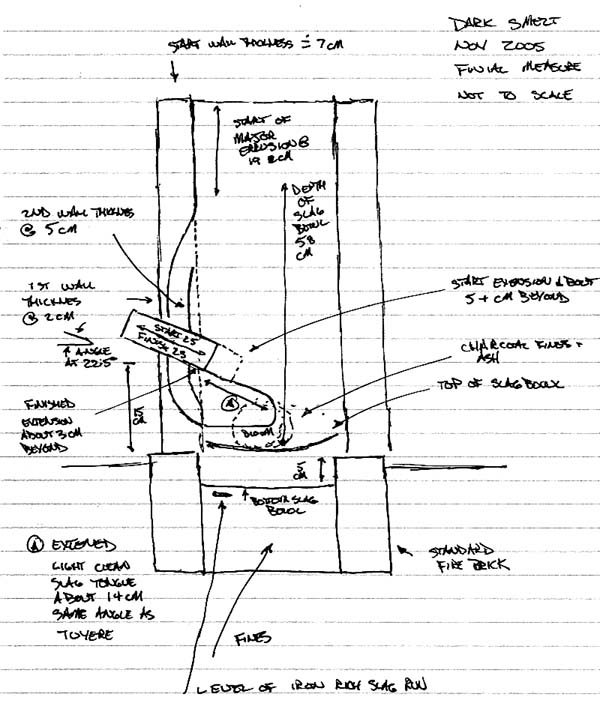 DARK SMELT
NOV 2005
FINIAL MEASURE
NOT TO SCALE
START WALL THICKNESS ≐ 7 CM
START OF
MAJOR
ERRUSION @
19 CM
DEPTH
OF
SLAG
BOWL
58
CM
2ND WALL THICKNES
@ 5 CM
1ST WALL
THICKNES
@ 2 CM
START 25
FINISH 23
ANGLE
AT 22.5°
START EXTENSION ABOUT
5 + CM BEYOND
CHARCOAL FINES +
ASH
TOP OF SLAG BOWL
FINISHED
EXTENSION
ABOUT 3 CM
BEYOND
15
CM
A
BLOOM
5
CM
BOTTOM SLAG
BOWL
A EXTENED
LIGHT CLEAN
SLAG TONGUE
ABOUT 14 CM
SAME ANGLE AS
TUYERE
STANDARD
FIRE BRICK
FINES
LEVEL OF IRON RICH SLAG RUN